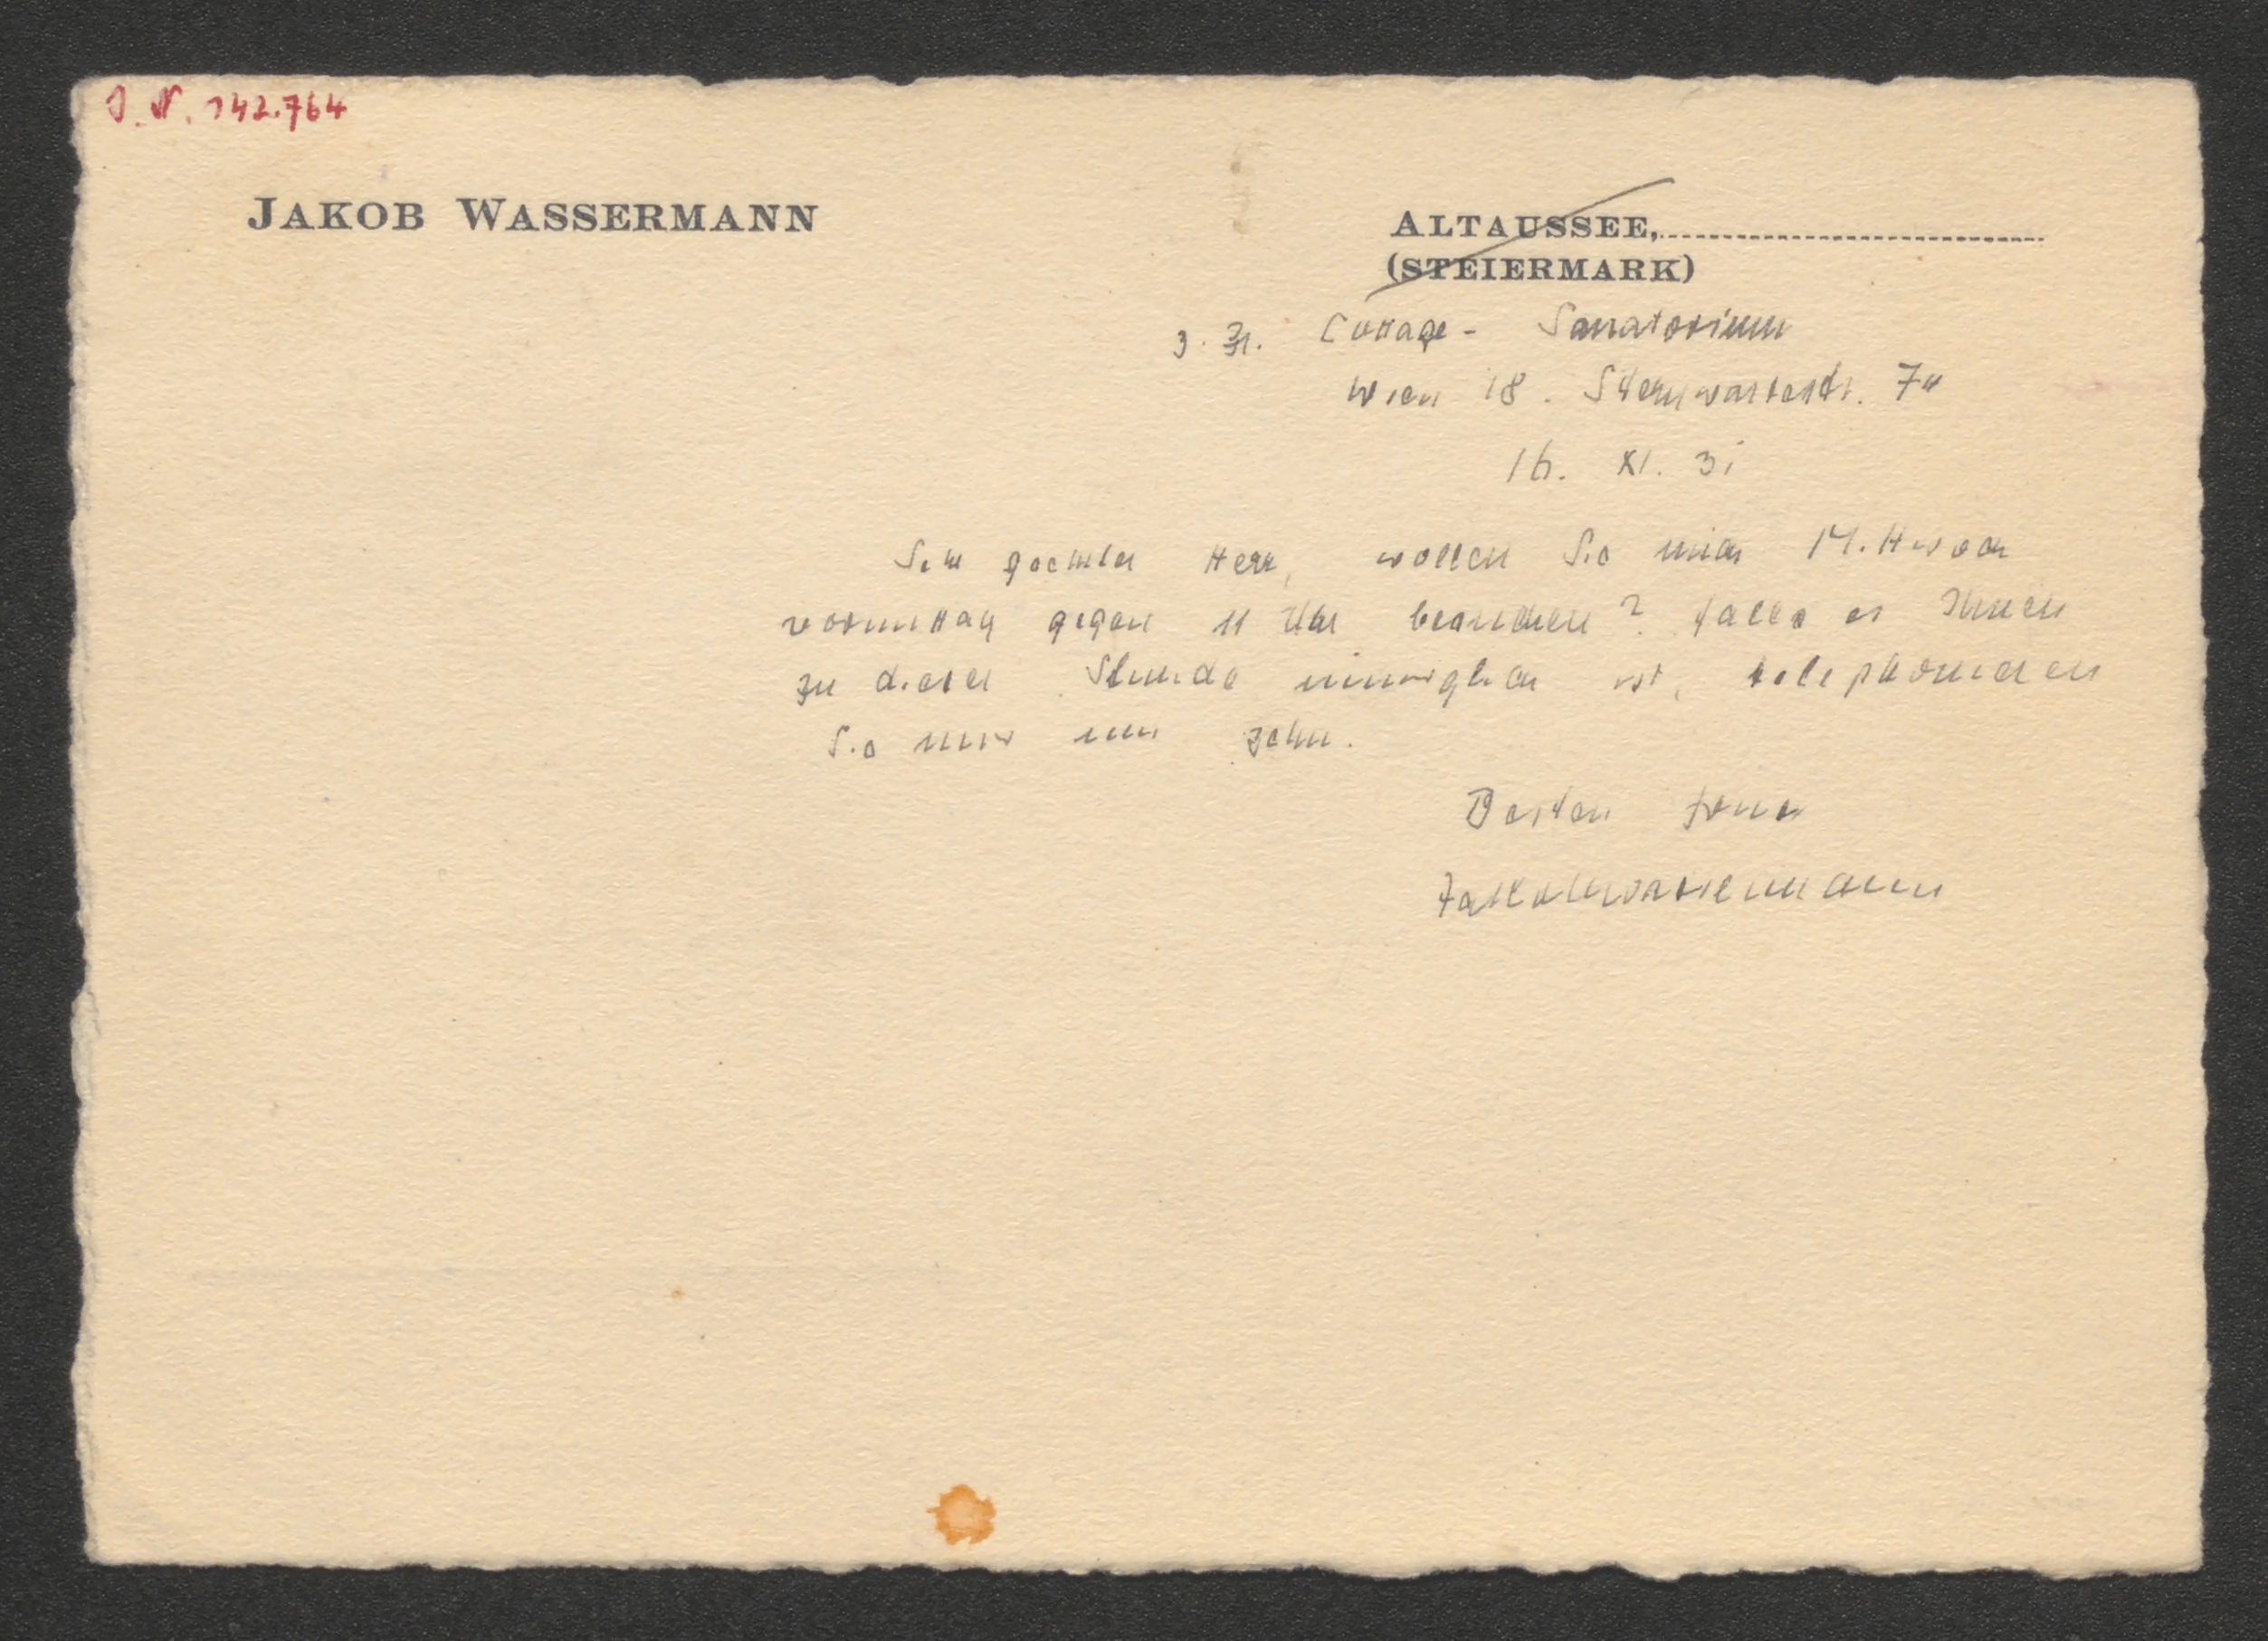 I. N. 142.764
JAKOB WASSERMANN
ALTAUSSEE,
(STEIERMARK)
z. Zt. Cottage - Sanatorium
Wien 18. Sternwartestr. 74
16. XI. 31
Sehr geehrter Herr, wollen Sie mich Mittwoch
vormittag gegen 11 Uhr besuchen? Falls es Ihnen
zu dieser Stunde unmöglich ist, telephonieren
Sie mir um zehn.
Besten
Jakob Wassermann